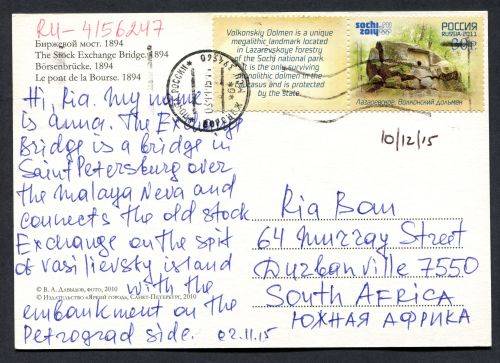 RU-4156247
Биржевой мост. 1894
The Stock Exchange Bridge. 1894
Börsenbrücke. 1894
Le pont de la Bourse. 1894
Hi, Ria. My name
is anna. The Exchange
Bridge is a bridge in
Saint Petersburg over
the Malaya Neva and
connects the old stock
Exchange on the spit
of Vasilievsky island
with the
embankment on the
Petrograd side. 02.11.15
© В. А. Давыдов, фото, 2010
© Издательство «Яркий город», Санкт-Петербург, 2010
Volkonskiy Dolmen is a unique
megalithic landmark located
in Lazarevskoye forestry
of the Sochi national park.
It is the only surviving
monolithic dolmen in the
Caucasus and is protected
by the state.
sochi
2014
РОССИЯ
RUSSIA·2011
Лазаревское. Волконский дольмен
ВОРОНЕЖ
10/12/15
Ria Bam
64 Murray Street
Durbanville 7550
South AFRICA
ЮЖНАЯ АФРИКА